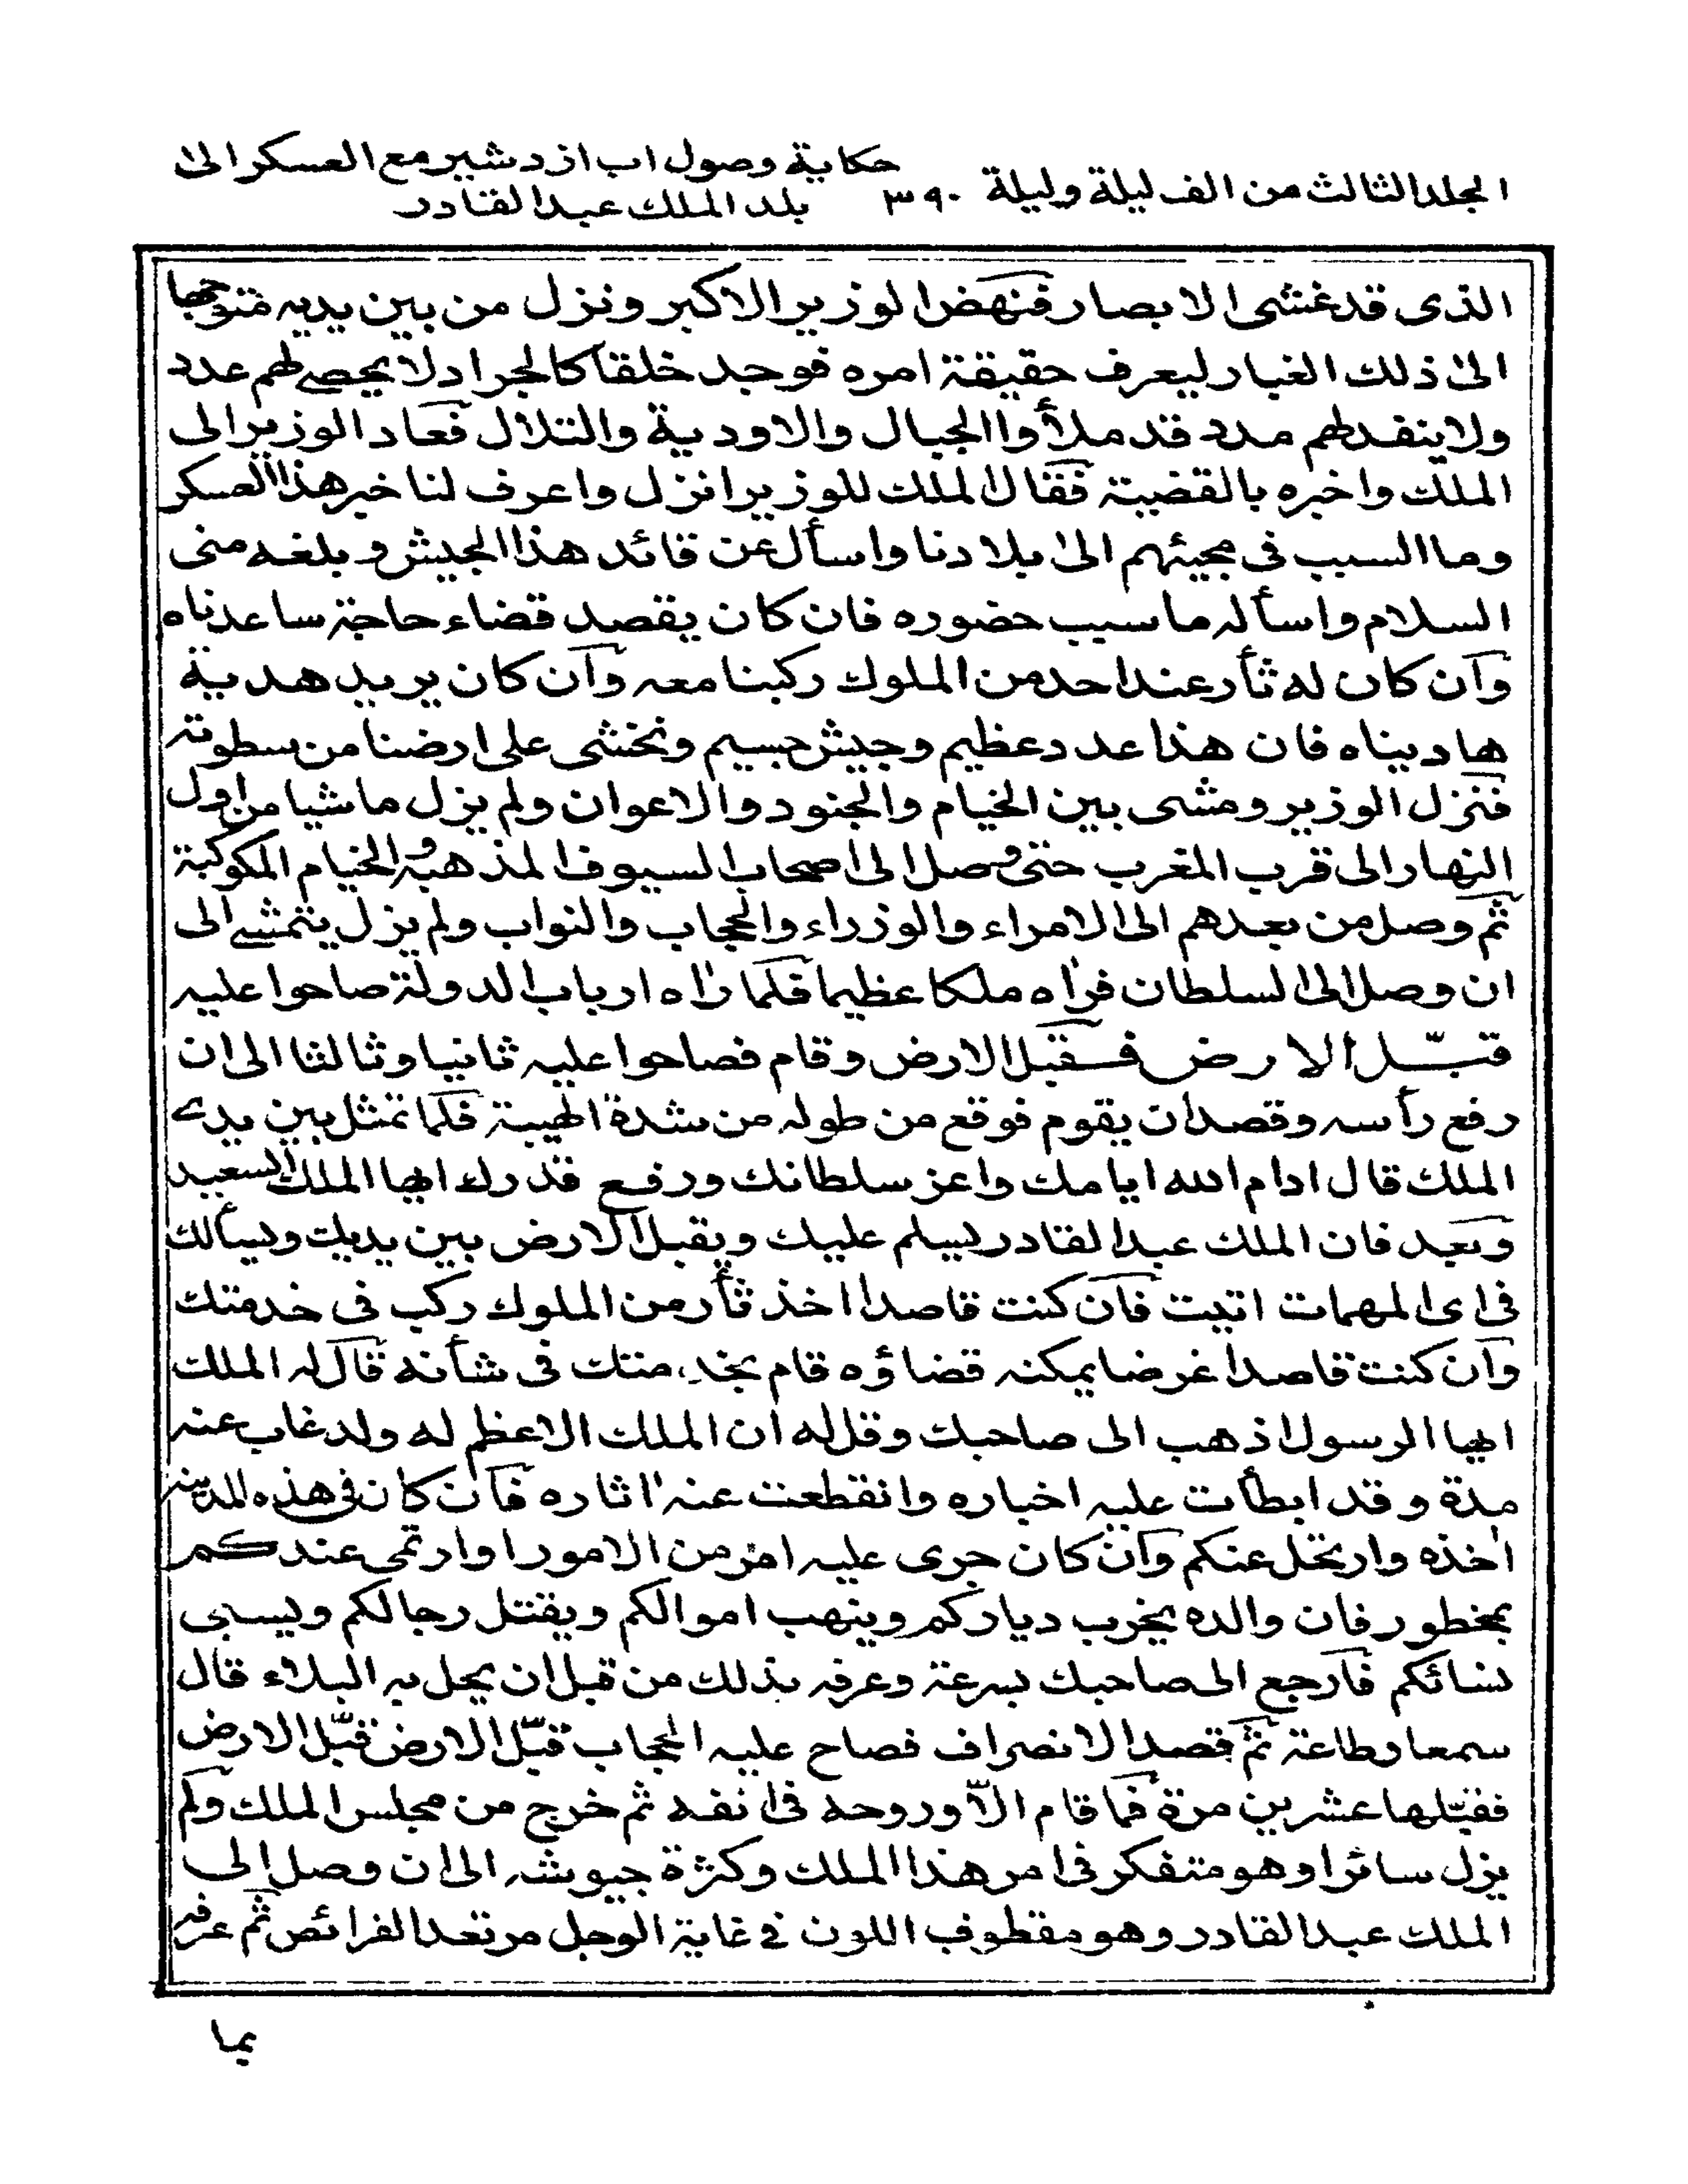 المجلد الثالث من الف ليلة وليلة ٣٩٠ حكاية وصول اب ازدشير مع العسكر الى
بلد الملك عبد القادر
الذى قد غشى الابصار فنهض الوزير الاكبر ونزل من بين يديه متوجها
الى ذلك الغبار ليعرف حقيقة امره فوجد خلقا كالجراد لا يحصے لهم عدد
ولا ينفد لهم مدد قد ملأوا الجبال والاودية والتلال فعاد الوزير الى
الملك واخبره بالقضية فقال الملك للوزير انزل واعرف لنا خبر هذا العسكر
وما السبب فى مجيئهم الى بلادنا واسأل عن قائد هذا الجيش و بلغه منى
السلام واسأله ما سبب حضوره فان كان يقصد قضاء حاجة ساعدناه
وان كان له ثأر عند احد من الملوك ركبنا معه وان كان يريد هدية
هاديناه فان هذا عدد عظيم وجيش جسيم ونخشى على ارضنا من سطوته
فنزل الوزير ومشى بين الخيام والجنود والاعوان ولم يزل ماشيا من اول
النهار الى قرب المغرب حتى وصل الى اصحاب السيوف المذهبة والخيام المكوكبة
ثم وصل من بعدهم الى الامراء والوزراء والحجاب والنواب ولم يزل يتمشے الى
ان وصل الى السلطان فرأه ملكا عظيما فلما رأه ارباب الدولة صاحوا عليه
قبّل الارض فقبل الارض وقام فصاحوا عليه ثانيا وثالثا الى ان
رفع رأسه وقصد ان يقوم فوقع من طوله من شدة الهيبة فلما تمثل بين يدے
الملك قال ادام الله ايامك واعز سلطانك ورفع قدرك ايها الملك السعيد
وبعد فان الملك عبد القادر يسلم عليك ويقبل الارض بين يديك ويسألك
فى اى المهمات اتيت فان كنت قاصدا اخذ ثأر من الملوك ركب فى خدمتك
وان كنت قاصدا غرضا يمكنه قضاؤه قام بخدمتك فى شأنه قال له الملك
ايها الرسول اذهب الى صاحبك وقل له ان الملك الاعظم له ولد غاب عنه
مدة وقد ابطأت عليه اخباره وانقطعت عنه اثاره فان كان فى هذه المدينة
اخذه وارتحل عنكم وان كان جرى عليه امر من الامور اوارتمى عندكم
بمخطور فان والده يخرب دياركم وينهب اموالكم ويقتل رجالكم ويسبى
نسائكم فارجع الى صاحبك بسرعة وعرفه بذلك من قبل ان يحل به البلاء قال
سمعا وطاعة ثم قصد الانصراف فصاح عليه الحجاب قبّل الارض قبّل الارض
فقبّلها عشرين مرة فما قام الّا وروحه فى انفه ثم خرج من مجلس الملك ولم
يزل سائرا وهو متفكر فى امر هذا الملك وكثرة جيوشه الى ان وصل الى
الملك عبد القادر وهو مقطوف اللون فے غاية الوجل مرتعد الفرائص ثم عرفه
بما